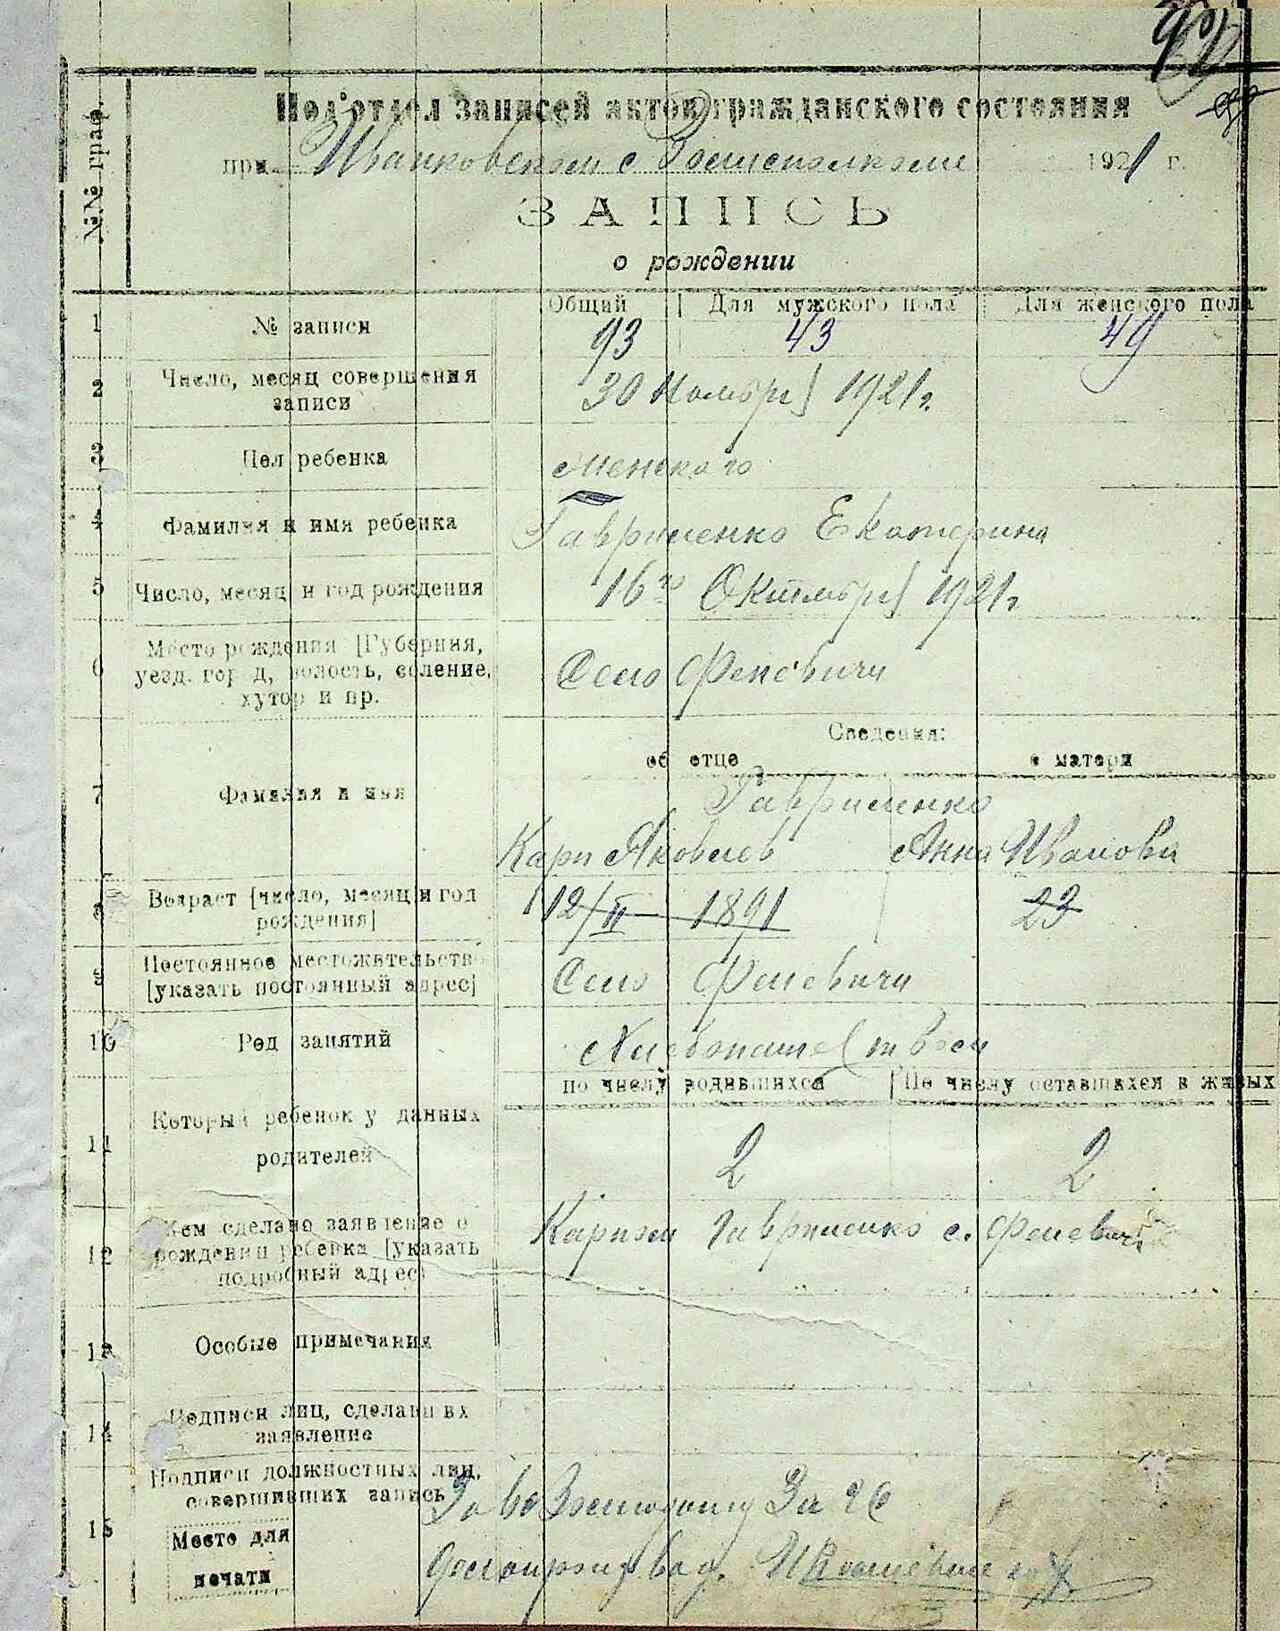 №№ граф.
Под'отдел записей актов гражданского состояния
при Иванковском с Волисполкоме 1921 г.
ЗАПИСЬ
о рождении
Общий Для мужского пола Для женского пола
1 № записи 93 43 49
2 Число, месяц совершения 30 Ноября 1921 г.
записи
3 Пол ребенка Женского
4 Фамилия и имя ребенка Гавриленко Екатерина
5 Число, месяц и год рождения 16го Октября 1921 г.
6 Место рождения [Губерния,
уезд. город, волость, селение, Село Феневичи
хутор и пр.
Сведения:
об отце о матери
7 Фамилия и имя Гавриленко
Карп Яковлев Анна Иванова
8 Возраст [число, месяц и год 12/II 1891 23
рождения]
9 Постоянное местожительство
[указать постоянный адрес] Село Феневичи
10 Род занятий Хлебопашеством
по числу родившихся По числу оставшихся в живых
11 Который ребенок у данных
родителей 2 2
12 Кем сделано заявление о Карпом Гавриленко с. Феневичи
рождении ребенка [указать
подробный адрес]
13 Особые примечания
14 Подписи лиц, сделавших
заявление
15 Подписи должностных лиц,
совершивших запись
Место для
печати Делопроизвод.